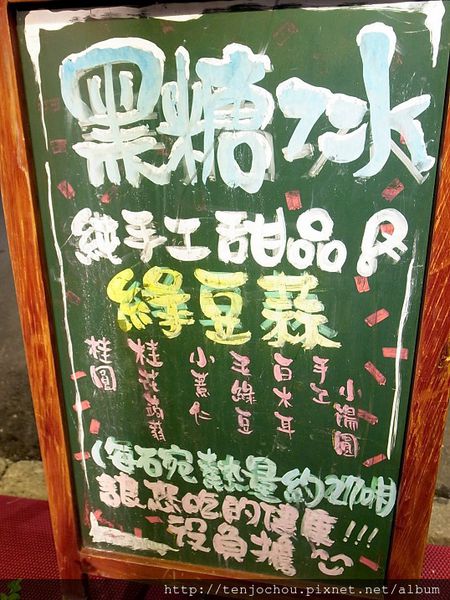 黑糖ㄘㄨㄚ冰
純手工甜品&
綠豆蒜
小湯圓
手工
白木耳
玉綠豆
小薏仁
桂花蒟蒻
桂圓
(每碗熱量約270卡
讓您吃的健康
沒負擔!!!
http://tenjochou.pixnet.net/album